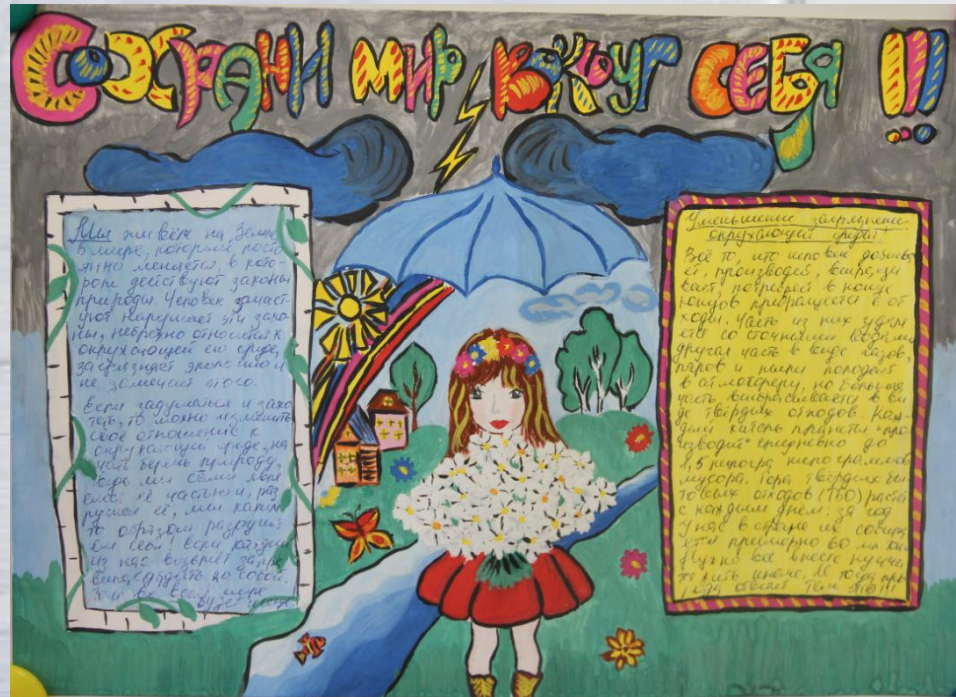 Сохрани мир вокруг себя !!!
Мы живём на Земле,
в мире, который посто
янно меняется, в кото
ром действуют законы
природы. Человек зачаст
ую нарушает эти зако
ны, небрежно относится к
окружающей его среде,
загрязняет экологию и
не замечает этого.
Если задуматься и захо
теть, то можно изменить
своё отношение к
окружающей среде, на
чать беречь природу,
ведь мы сами явля
емся её частью и, раз
рушая её, мы каким
то образом разруша
ем себя! Если каждый
из нас возьмёт за пра
вило следить за собой.
То и во всём мире
будет
Уменьшение загрязнения
окружающей среды!
Всё то, что человек добыва
ет, производит, выращи
вает, потребляет в конце
концов превращается в от
ходы. Часть из них удаля
ется со сточными водами
другая часть в виде газов,
паров и пыли попадает
в атмосферу, но большая
часть выбрасывается в ви
де твёрдых отходов. Каж
дый житель планеты "про
изводит" ежедневно до
1,5 килограммов
мусора. Гора твёрдых бы
товых отходов (ТБО) растёт
с каждым днём: за год
у нас в стране их собира
ется примерно 60 млн
Нужно все вместе научи
ться жить иначе. И тогда при
рода ответит тем же!!!